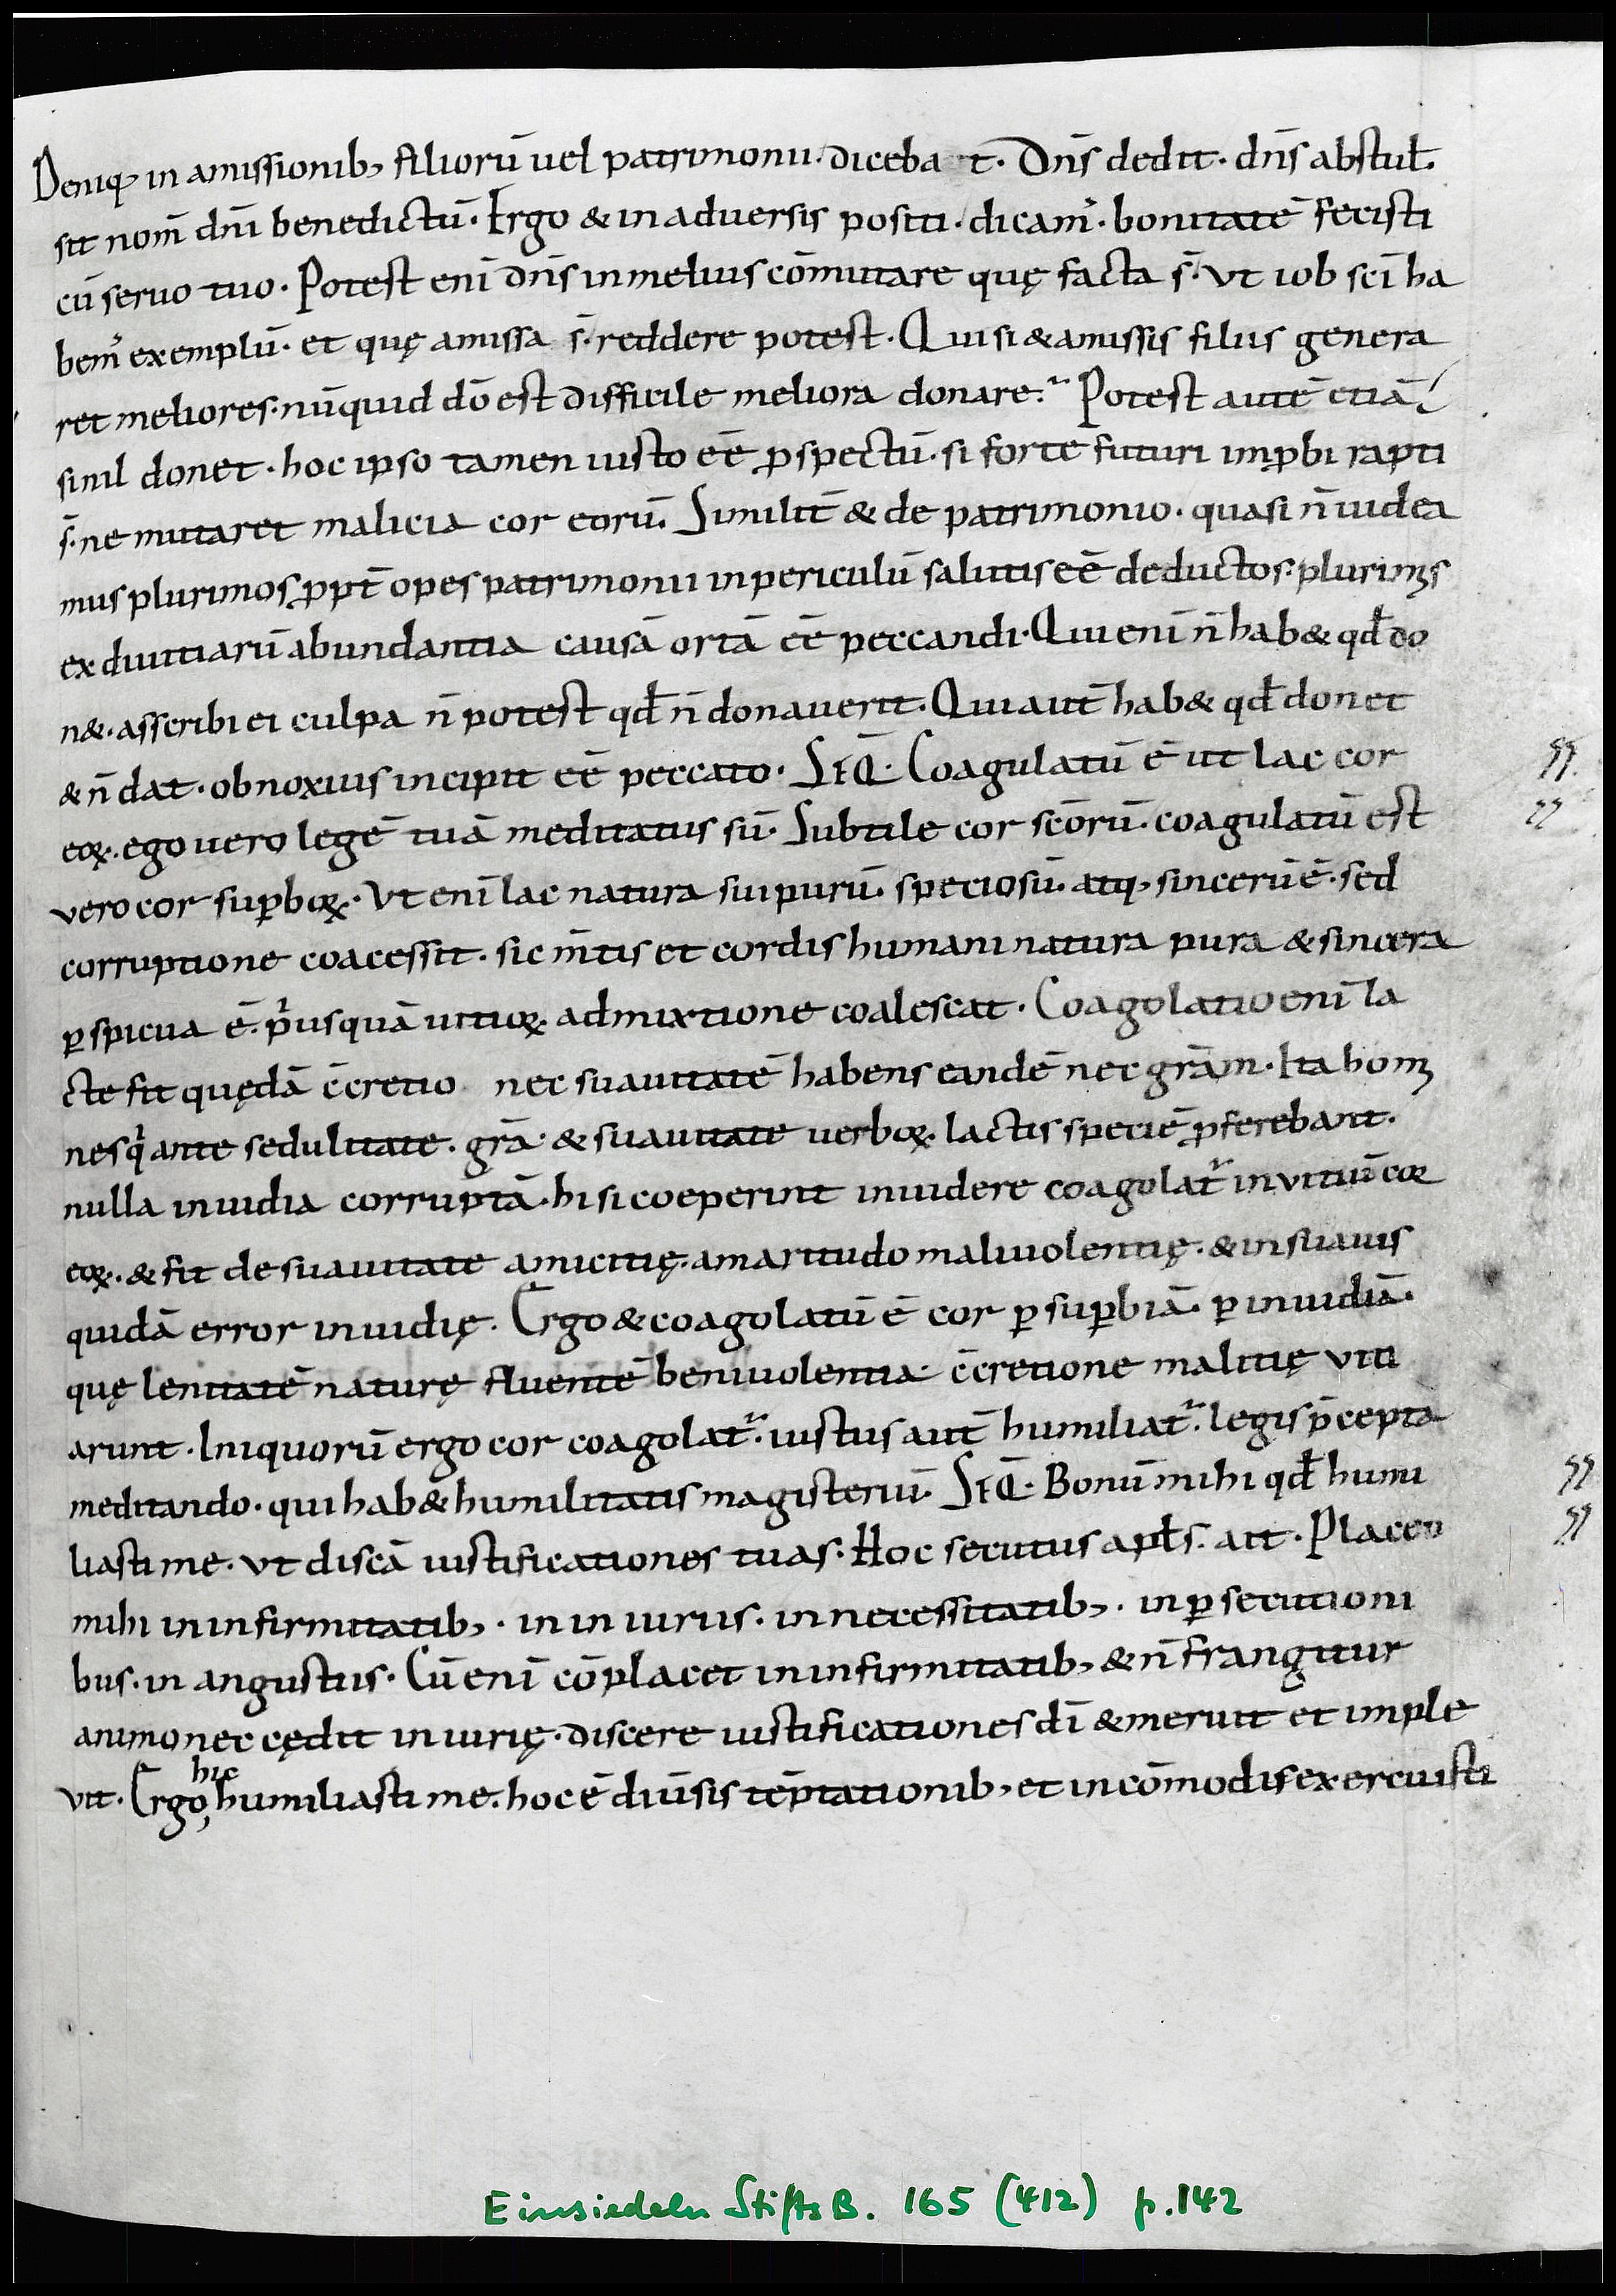 Deniq; in amissionib; filiorū uel patrimonii. diceba t. Dn̄s dedit. dn̄s abstul̄.
sit nom̄ dn̄i benedictū. Ergo & in aduersis positi. dicam᾽. bonitatē fecisti
cū seruo tuo. Potest eni̅ dn̄s in melius cōmutare quę facta s̄. Vt iob sc̄i ha
bem᾽ exemplū. et quę amissa s̄. reddere potest. Qui si & amissis filiis genera
ret meliores. nūquid dō est difficile meliora donare? Potest autē etiā
si nil donet. hoc ipso tamen iusto eē ꝓspectū. si forte futuri imꝓbi rapti
s̄. ne mutaret malicia cor eorū. Similit̄ & de patrimonio. quasi n̄ uidea
mus plurimos ꝓpt̄ opes patrimonii in periculū salutis eē deductos. plurimꝫs
ex diuitiarū abundantia causā ortā eē peccandi. Qui eni̅ n̄ hab& qđ do
n&. asscribi ei culpa n̄ potest qđ n̄ donauerit. Qui aut̄ hab& qđ donet
& n̄ dat. obnoxius incipit eē peccato. SEQ̄. Coagulatū ē ut lac cor
eoꝝ. ego uero legē tuā meditatus sū. Subtile cor sc̄orū. coagulatū est
vero cor suꝑboꝝ. Vt eni̅ lac natura sui purū. speciosū. atq; sincerū ē. sed
corruptione coacessit. sic m̄tis et cordis humani natura pura & sincera
ꝑspicua ē. p᾽usquā uitioꝝ admixtione coalescat. Coagolatio eni̅ la
cte fit quędā c̄cretio nec suauitatē habens eandē nec grām. Ita homꝫ
nes q᾽ ante sedulitate. grā & suauitate uerboꝝ. lactis speciē p̄ferebant.
nulla inuidia corruptā. hi si coeperint inuidere coagolat᷑ in vitiū coꝛ
eoꝝ. & fit de suauitate amicitię. amaritudo maliuolentię. & insuauis
quidā error inuidię. Ergo & coagolatū ē cor ꝑ suꝑbiā. ꝑ inuidiā.
quę lenitatē naturę fluentē beniuolentia c̄cretione malitię viti
arunt. Iniquorū ergo cor coagolat᷑. iustus aut̄ humiliat᷑. legis p̄cepta
meditando. qui hab& humilitatis magisteriū. SEQ̄. Bonū mihi qđ humi
liasti me. vt discā iustificationes tuas. Hoc secutus apƚs. ait. Placeo
mihi in infirmitatib;. in iniuriis. in necessitatib;. in ꝑsecutioni
bus. in angustiis. Cū eni̅ cōplacet in infirmitatib; & n̄ frangitur
animo nec cędit iniurię. discere iustificationes dī & meruit et imple
vit. Ergo, hic humiliasti me. hoc ē diūsis tēptationib; et incōmodis exercuisti
Einsiedeln StiftsB. 165 (412) p. 142